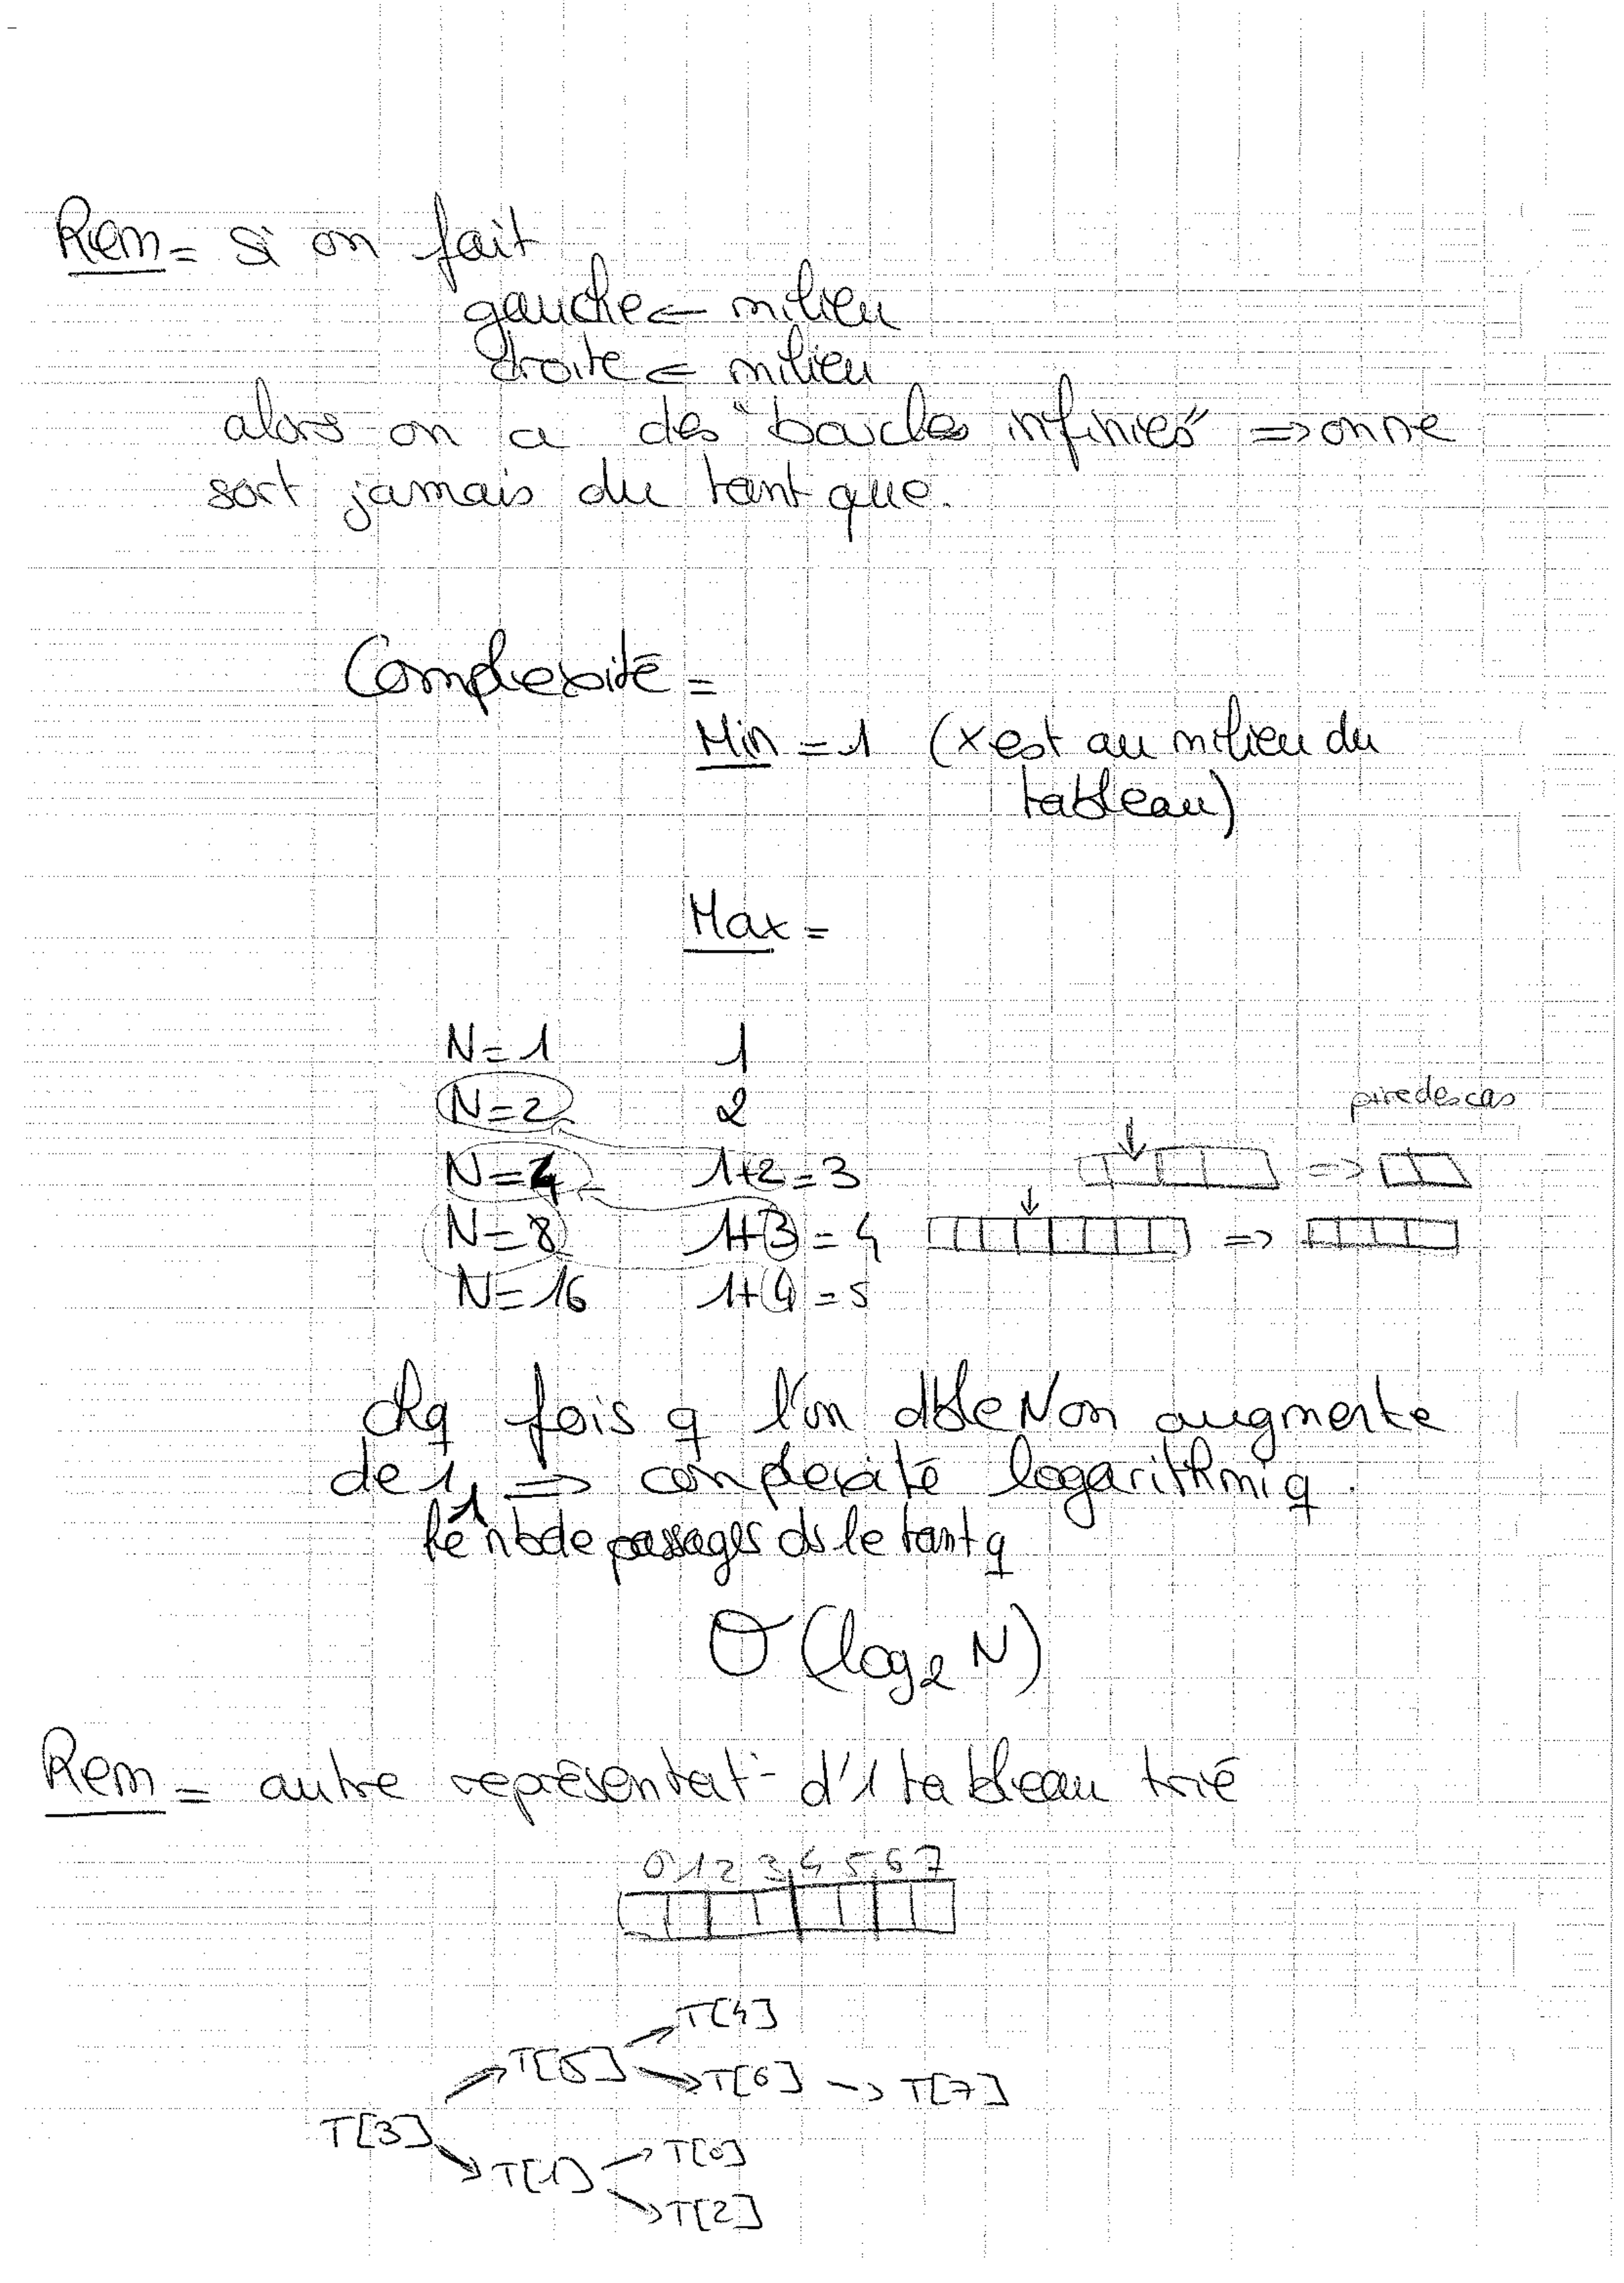 Rem = si on fait
gauche ← milieu
droite ← milieu
alors on a des "boucles infinies" => on ne
sort jamais du tant que.
Complexité =
Min = 1 (x est au milieu du
tableau)
Max =
N=1 1
N=2 2
pire des cas
N=4 1+2=3 =>
N=8 1+3=4 =>
N=16 1+4=5
chq fois q l'on dble N on augmente
de 1 => complexité logarithmiq.
le nb de passages ds le tant q
O(log₂ N)
Rem = autre représentat° d'1 tableau trié
0 1 2 3 4 5 6 7
T[4]
T[5] T[6] → T[7]
T[3]
T[1] T[0]
T[2]